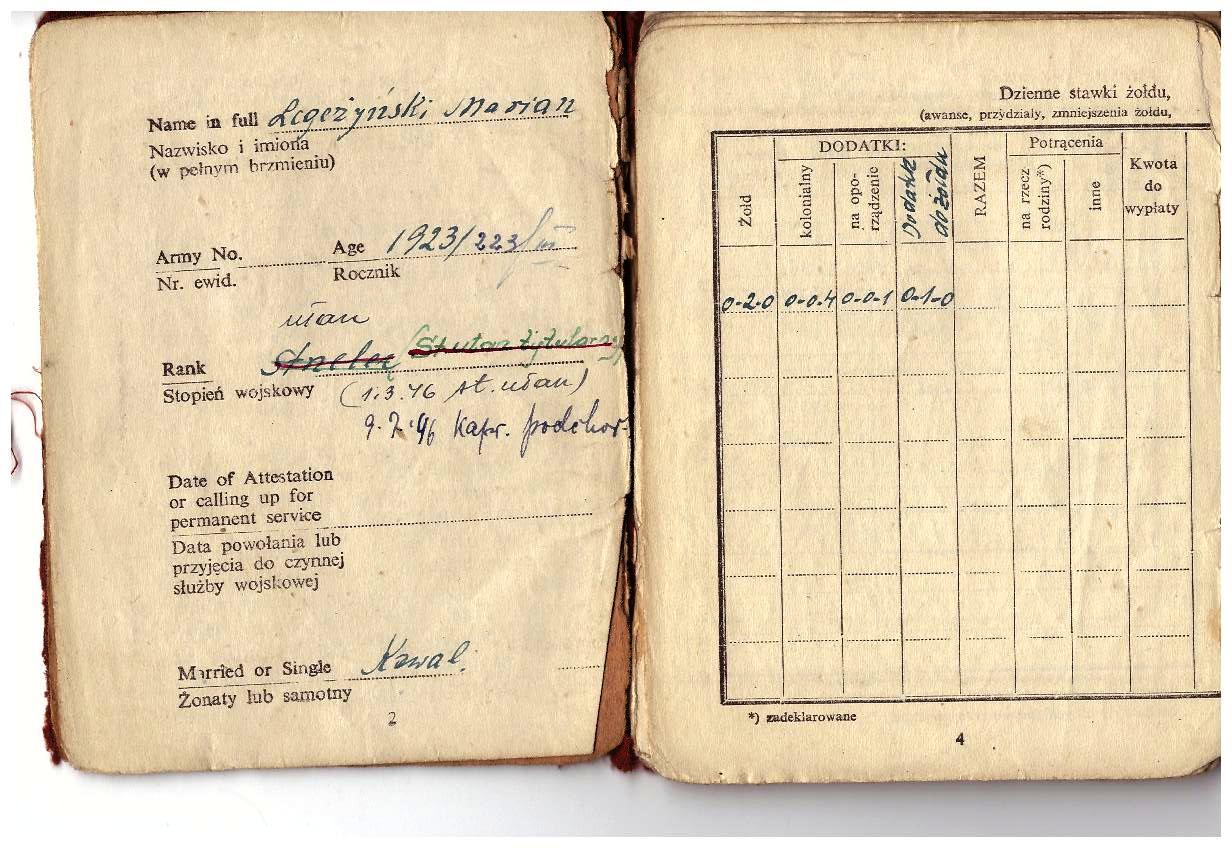 Name in full Legeżyński Marian
Nazwisko i imiona
(w pełnym brzmieniu)
Army No. Age 1923/223/III
Nr. ewid. Rocznik
ułan
Rank Strzelec
Stopień wojskowy (1.3.46 st. ułan)
9.7.46 kapr. podchor.
Date of Attestation
or calling up for
permanent service
Data powołania lub
przyjęcia do czynnej
służby wojskowej
Married or Single Kawal.
Żonaty lub samotny
2
Dzienne stawki żołdu,
(awanse, przydziały, zmniejszenia żołdu,
DODATKI: Potrącenia
Żołd
kolonialny
na opo-
rządzenie
Dodatek
do żołdu
RAZEM
na rzecz
rodziny*)
inne
Kwota
do
wypłaty
0-2-0 0-0-4 0-0-1 0-1-0
*) zadeklarowane
4